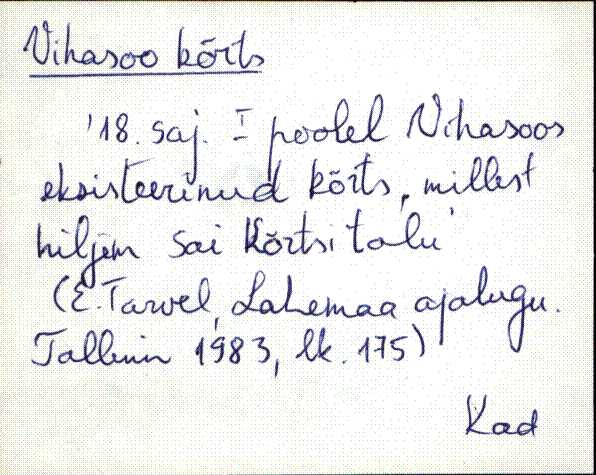 Vihasoo kõrts
'18. saj. I poolel Vihasoos
eksisteerinud kõrts, millest
hiljem sai Kõrtsi talu'
(E. Tarvel, Lahemaa ajalugu.
Tallinn 1983, lk. 175)
Kad